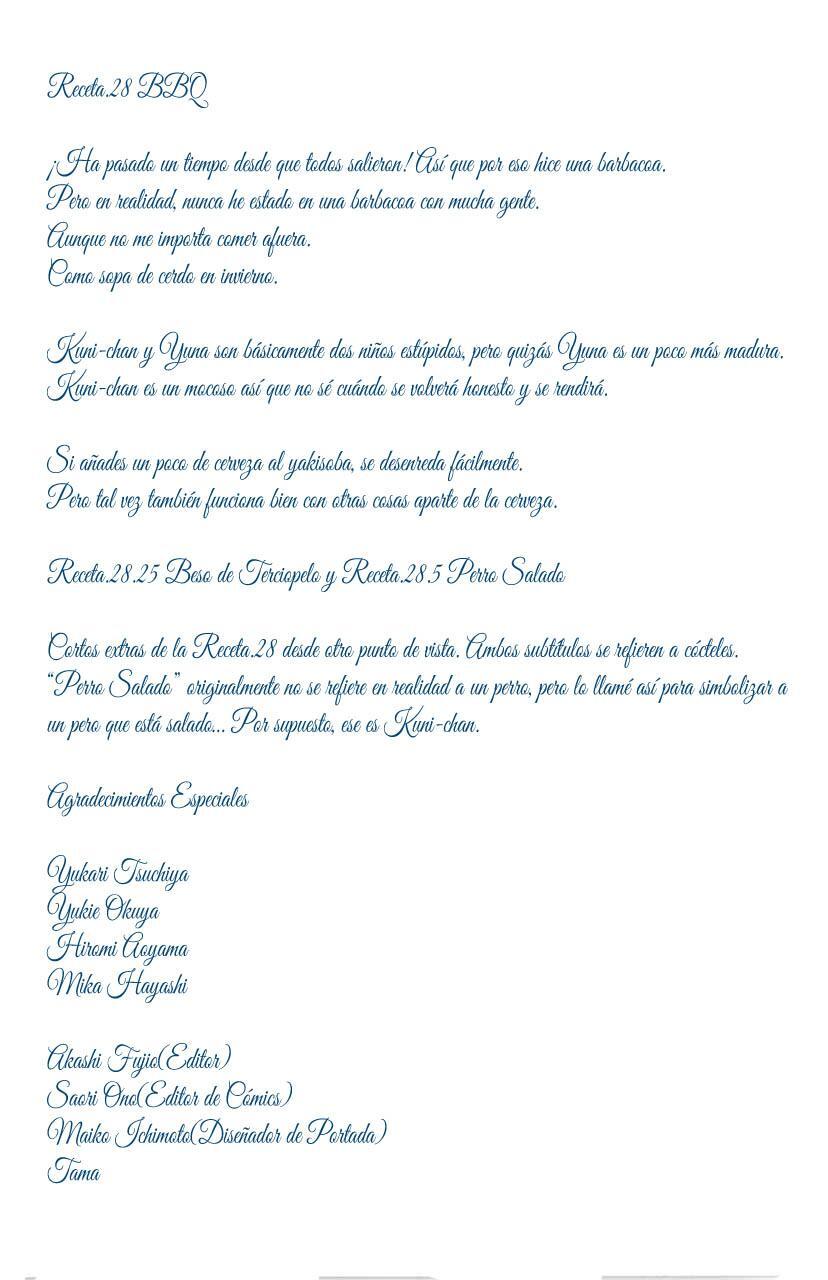 Receta.28 BBQ
¡Ha pasado un tiempo desde que todos salieron! Así que por eso hice una barbacoa.
Pero en realidad, nunca he estado en una barbacoa con mucha gente.
Aunque no me importa comer afuera.
Como sopa de cerdo en invierno.
Kuni-chan y Yuna son básicamente dos niños estúpidos, pero quizás Yuna es un poco más madura.
Kuni-chan es un mocoso así que no sé cuándo se volverá honesto y se rendirá.
Si añades un poco de cerveza al yakisoba, se desenreda fácilmente.
Pero tal vez también funciona bien con otras cosas aparte de la cerveza.
Receta.28.25 Beso de Terciopelo y Receta.28.5 Perro Salado
Cortos extras de la Receta.28 desde otro punto de vista. Ambos subtítulos se refieren a cócteles.
“Perro Salado” originalmente no se refiere en realidad a un perro, pero lo llamé así para simbolizar a
un pero que está salado... Por supuesto, ese es Kuni-chan.
Agradecimientos Especiales
Yukari Tsuchiya
Yukie Okuya
Hiromi Aoyama
Mika Hayashi
Akashi Fujio(Editor)
Saori Ono(Editor de Cómics)
Maiko Ichimoto(Diseñador de Portada)
Tama